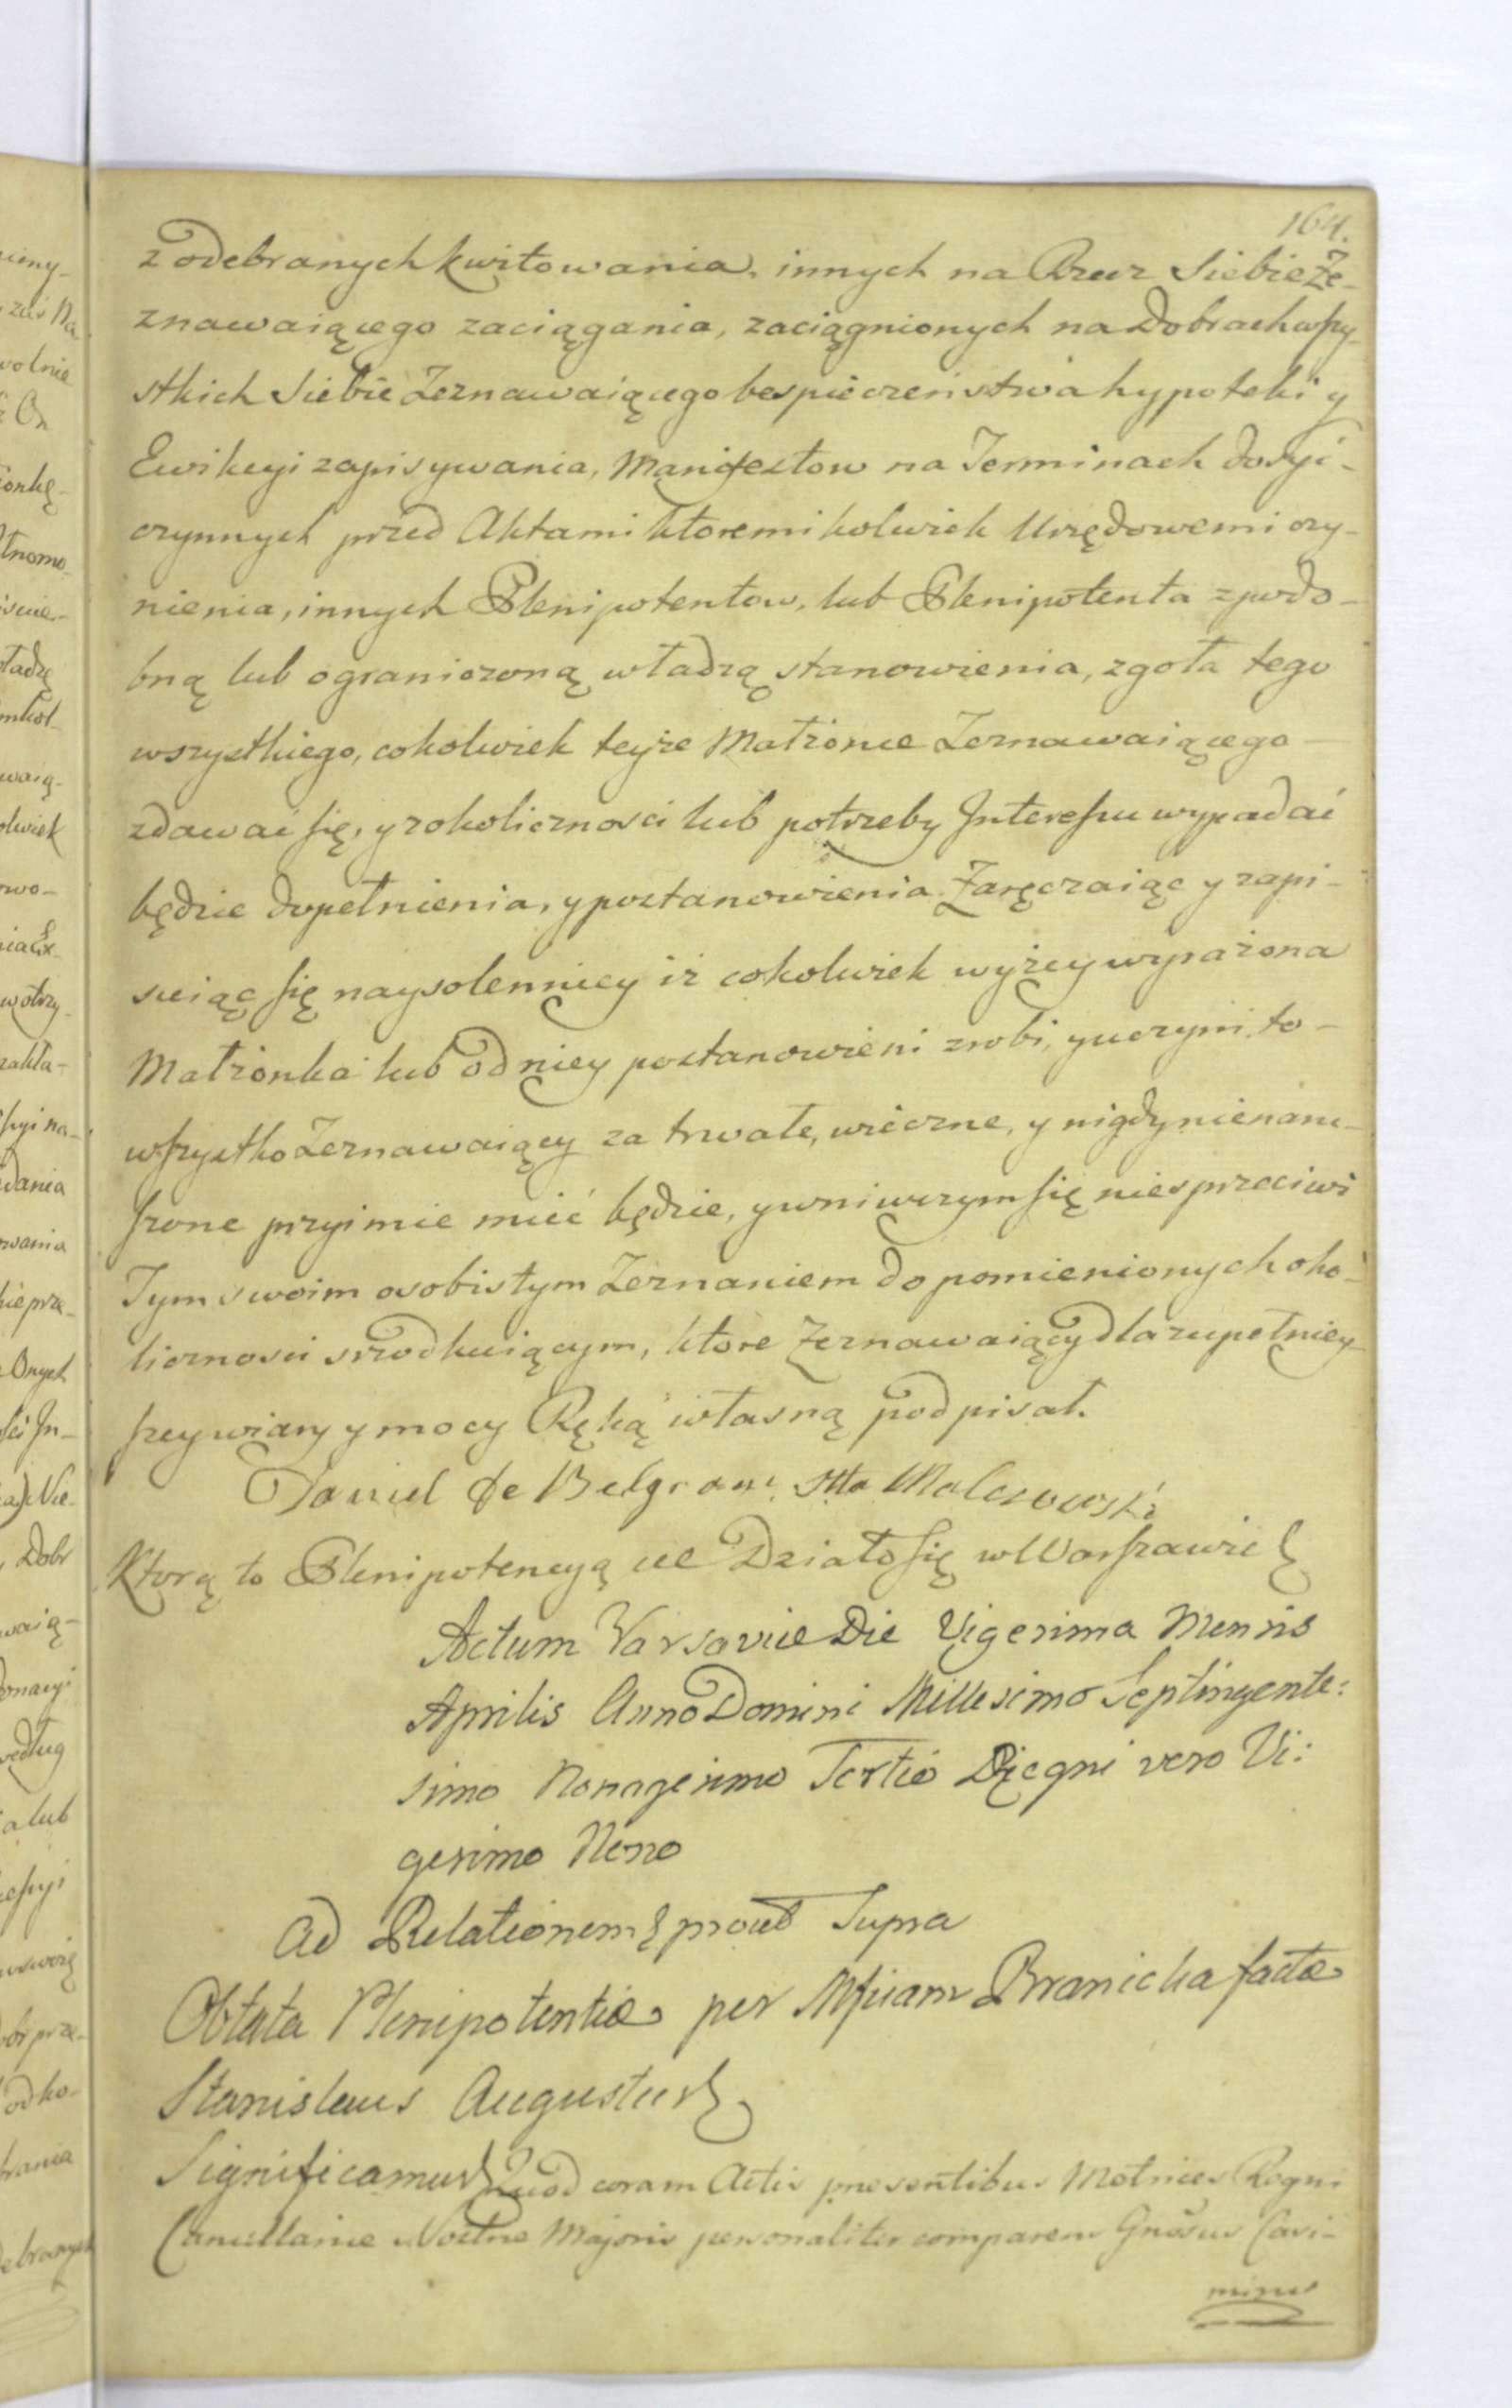 164.
z odebranych kwitowania, innych na Rzecz Siebie Ze-
znawaiącego zaciągania, zaciągnionych na Dobrach wszy-
stkich Siebie Zeznawaiącego bespieczeństwa hypoteki y
Ewikcyi zapisywania, Manifestow na Terminach dosyć-
czynnych przed Aktami ktoremikolwiek Urzędowemi czy-
nienia, innych Plenipotentow, lub Plenipotenta z podo-
bną lub ograniczoną władzą stanowienia, zgoła tego
wszystkiego, cokolwiek teyże Małżonce Zeznawaiącego
zdawać się, y z okoliczności lub potrzeby Interessu wypadać
będzie dopełnienia, y postanowienia. Zaręczaiąc y zapi-
suiąc się naysolenniey iż cokolwiek wyżey wyrażona
Małżonka lub od niey postanowieni zrobi, y uczyni to-
wszystko Zeznawaiący za trwałe, wieczne, y nigdy nienaru-
szone przyimie mieć będzie, y w niwczym się niesprzeciwi
Tym swoim osobistym Zeznaniem do pomienionych oko-
liczności srzodkuiącym, ktore Zeznawaiący dla zupełniey-
szey wiary y mocy Ręką własną podpisał.
Daniel de Belgram Htta Malczewski
Ktorą to Plenipotencyą etc Działo się w Warszawie etc
Actum Varsaviæ Die Vigesima Mensis
Aprilis Anno Domini Millesimo Septingente:
simo Nonagesimo Tertio Regni vero Vi:
gesimo Nono
Ad Relationem etc prout Supra
Oblata Plenipotentiæ per Mficam Branicka factæ
Stanislaus Augustus etc
Significamus etc Quod coram Actis præsentibus Metrices Regni
Cancellariæ Nostræ Majoris personaliter comparens Gnosus Casi-
mirus